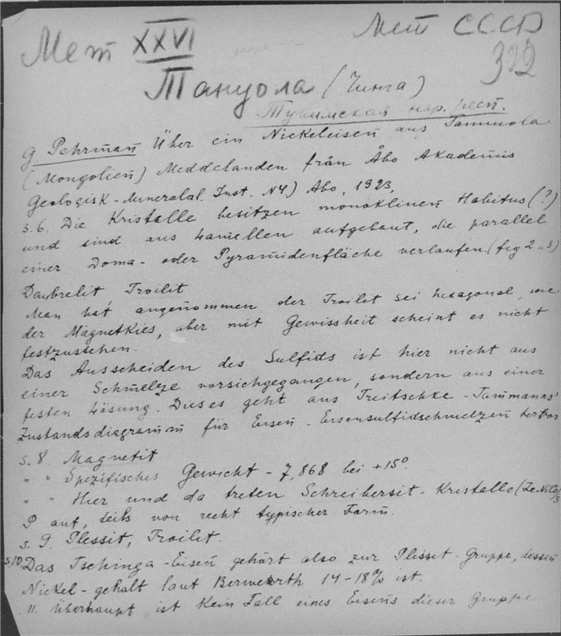 Мет XXVI
Мет СССР
322
Тануола (Чинга)
Тувимская нар. респ.
G Pehrman Über ein Nickeleisen aus Tannuola
(Mongolien) Meddelanden från Åbo Akademis
Geologisk-Mineralal. Inst. N4) Åbo, 1923,
S. 6. Die Kristalle besitzen monoklinen Habitus (?)
und sind aus Lamellen aufgebaut, die parallel
einer Doma- oder Pyramidenfläche verlaufen (fig 2 u 3)
Daubrelit Troilet
Man hat angenommen der Troilet sei hexagonal, wie
der Magnetkies, aber mit Gewissheit scheint es nicht
festzustehen.
Das Ausscheiden des Sulfids ist hier nicht aus
einer Schmelze vorsichgegangen, sondern aus einer
festen Lösung. Dieses geht aus Treitschke-Tammanns'
Zustandsdiagramm für Eisen-Eisensulfidschmelzen hervor
S. 8 Magnetit
" " Spezifisches Gewicht - 7,868 bei +15°
" " Hier und da treten Schreibersit-Kristalle (Fe Ni Co)3
P auf, teils von recht typischer Form.
S. 9. Plessit, Troilet.
S10 Das Tschinga-Eisen gehört also zur Plisset-Gruppe, dessen
Nickel-gehalt laut Berwerth 14-18% ist.
11. Überhaupt ist kein Fall eines Eisens dieser Gruppe